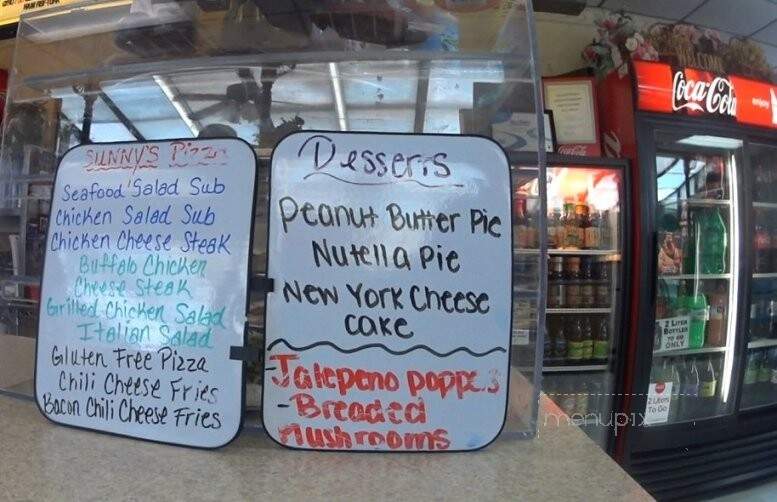 SUNNY'S Pizza
Seafood Salad Sub
Chicken Salad Sub
Chicken Cheese Steak
Buffalo Chicken
Cheese Steak
Grilled Chicken Salad
Italian Salad
Gluten Free Pizza
Chili Cheese Fries
Bacon Chili Cheese Fries
Desserts
Peanut Butter Pie
Nutella Pie
New York Cheese
Cake
-Jalepeno poppers
-Breaded
Mushrooms
WELCOME
Coca-Cola
enjoy
2 Liter
Bottles
To Go
ONLY
2 Liters
To Go
menupix